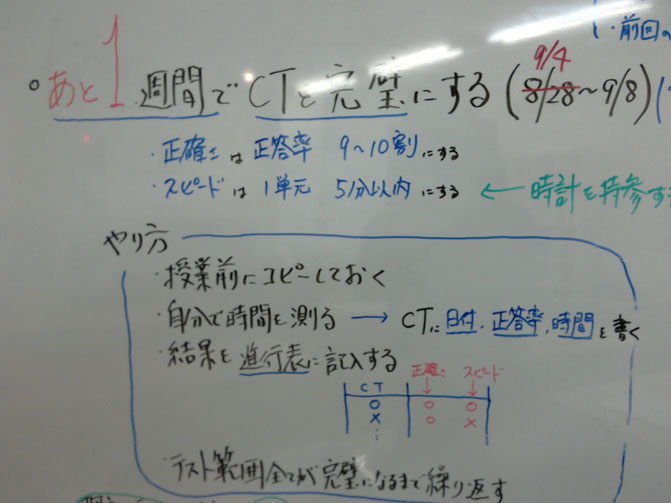 ・前回の
9/4
○あと1週間でCTを完璧にする (8/28~9/8)
・正確さは正答率 9~10割にする
・スピードは1単元 5分以内にする ← 時計を持参す
やり方
・授業前にコピーしておく
・自分で時間を測る → CTに日付、正答率、時間を書く
・結果を進行表に記入する
正確さ スピード
CT
○ ○ ○
× ○ ×
・テスト範囲全てが完璧になるまで繰り返す